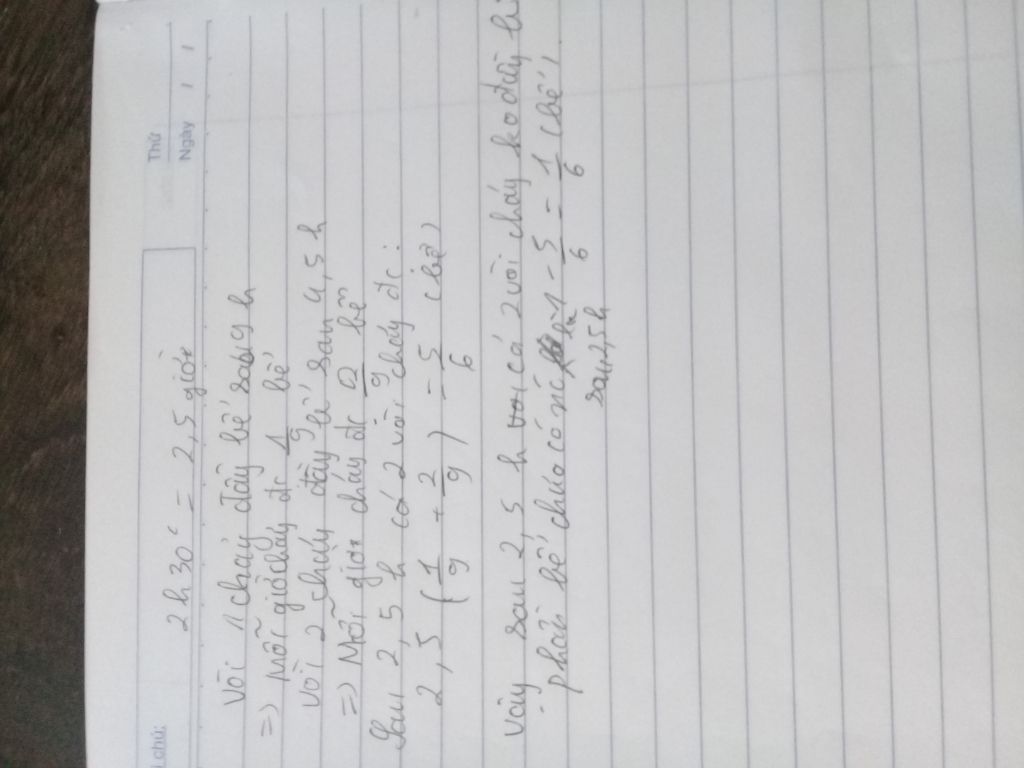 Thứ
Ngày / /
i chú:
2h30' = 2,5 giờ
Vòi 1 chảy đầy bể sau 9 h
=> Mỗi giờ chảy đc 1/9 bể
Vòi 2 chảy đầy bể sau 4,5 h
=> Mỗi giờ chảy đc 2/9 bể
Sau 2,5 h cả 2 vòi chảy đc:
2,5 (1/9 + 2/9) = 5/6 (bể)
Vậy sau 2,5 h cả 2 vòi chảy ko đầy bể
- phần bể chưa có nc là 1 - 5/6 = 1/6 (bể)
sau 2,5h